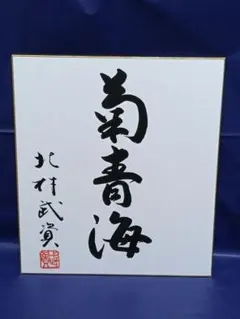 菊青海
北村武資